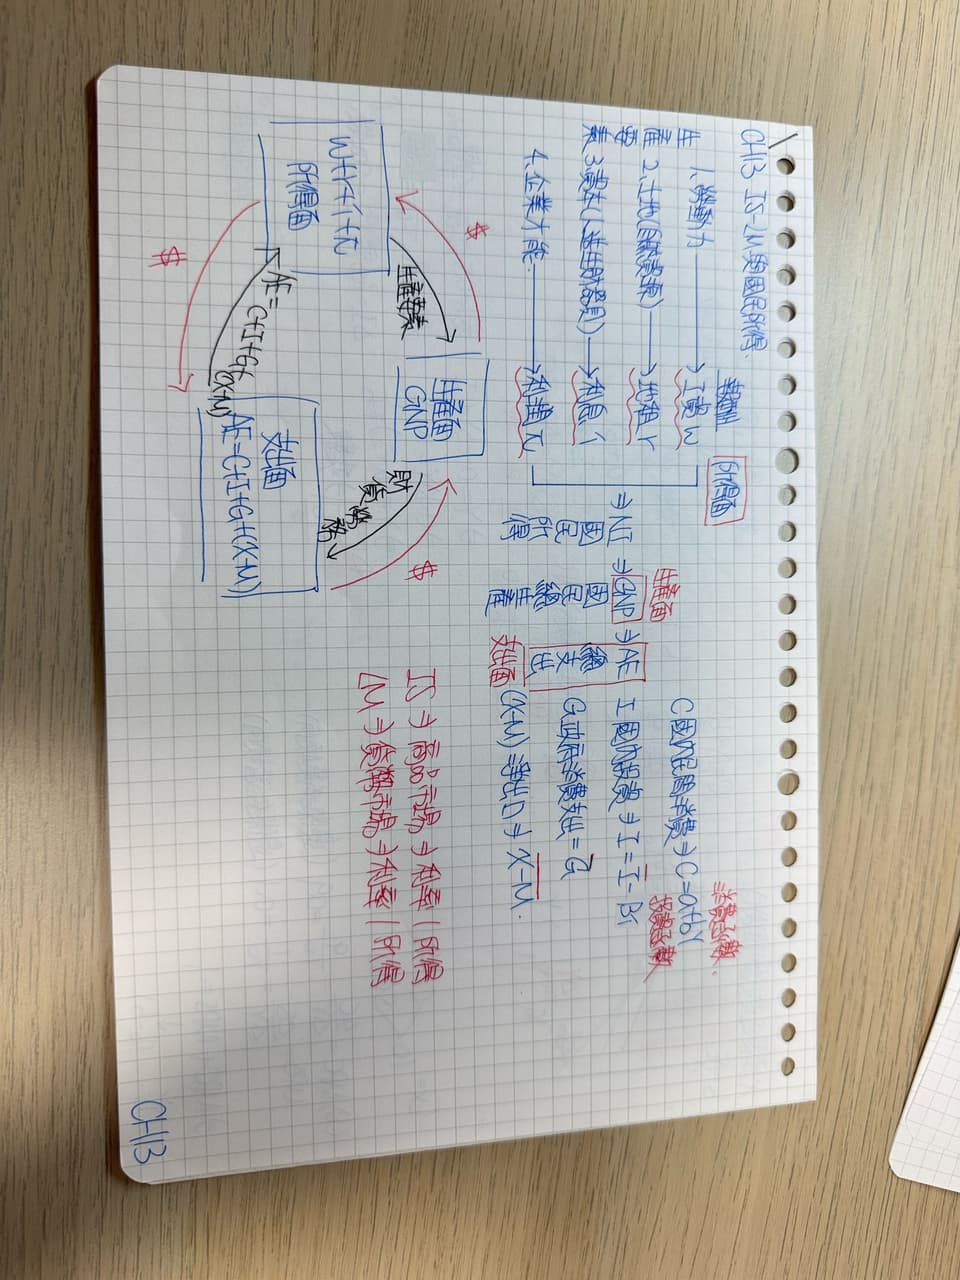 CH13 IS-LM與國民所得
生產要素
報酬
所得面
1.勞動力 → 工資w
2.土地(自然資源) → 地租r
3.資本(人造生財器具) → 利息i
4.企業才能 → 利潤π
⇒NI ⇒GNP ⇒AE
國民所得
國民總生產
總支出
生產面
支出面
C國內民間消費⇒C=a+bY
消費函數.
I國內投資⇒I=I̅-Br
投資函數
G政府消費支出=G̅
(X-M)=淨出口⇒X-M.
W+r+i+π
所得面
生產要素
$
生產面
GNP
財貨、勞務
$
支出面
AE=C+I+G+(X-M)
AE=C+I+G+(X-M)
$
IS⇒商品市場⇒利率|所得
LM⇒貨幣市場⇒利率|所得
CH13